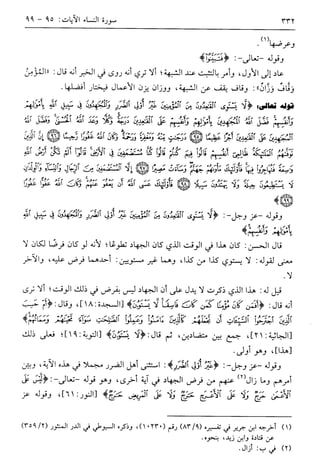 ٣٣٢ سورة النساء الآيات: ٩٥ - ٩٩
وعرضها(١).
وقوله -تعالى-: ﴿فَتَبَيَّنُوا﴾
عاد إلى الأول، وأمر بالتثبت عند الشبهة؛ ألا ترى أنه روى في الخبر أنه قال: «المُؤْمِنُ
وَقَّافٌ وَزَّانٌ»: وقاف يقف عن الشبهة، ووزان يزن الأعمال فيختار أفضلها.
قوله تعالى: ﴿لَّا يَسْتَوِى ٱلْقَٰعِدُونَ مِنَ ٱلْمُؤْمِنِينَ غَيْرُ أُو۟لِى ٱلضَّرَرِ وَٱلْمُجَٰهِدُونَ فِى سَبِيلِ ٱللَّهِ بِأَمْوَٰلِهِمْ
وَأَنفُسِهِمْ فَضَّلَ ٱللَّهُ ٱلْمُجَٰهِدِينَ بِأَمْوَٰلِهِمْ وَأَنفُسِهِمْ عَلَى ٱلْقَٰعِدِينَ دَرَجَةً وَكُلًّا وَعَدَ ٱللَّهُ ٱلْحُسْنَىٰ وَفَضَّلَ ٱللَّهُ
ٱلْمُجَٰهِدِينَ عَلَى ٱلْقَٰعِدِينَ أَجْرًا عَظِيمًا ٩٥ دَرَجَٰتٍ مِّنْهُ وَمَغْفِرَةً وَرَحْمَةً وَكَانَ ٱللَّهُ غَفُورًا رَّحِيمًا ٩٦ إِنَّ ٱلَّذِينَ
تَوَفَّىٰهُمُ ٱلْمَلَٰٓئِكَةُ ظَالِمِىٓ أَنفُسِهِمْ قَالُوا۟ فِيمَ كُنتُمْ قَالُوا۟ كُنَّا مُسْتَضْعَفِينَ فِى ٱلْأَرْضِ قَالُوٓا۟ أَلَمْ تَكُنْ أَرْضُ ٱللَّهِ
وَٰسِعَةً فَتُهَاجِرُوا۟ فِيهَا فَأُو۟لَٰٓئِكَ مَأْوَىٰهُمْ جَهَنَّمُ وَسَآءَتْ مَصِيرًا ٩٧ إِلَّا ٱلْمُسْتَضْعَفِينَ مِنَ ٱلرِّجَالِ وَٱلنِّسَآءِ وَٱلْوِلْدَٰنِ
لَا يَسْتَطِيعُونَ حِيلَةً وَلَا يَهْتَدُونَ سَبِيلًا ٩٨ فَأُو۟لَٰٓئِكَ عَسَى ٱللَّهُ أَن يَعْفُوَ عَنْهُمْ وَكَانَ ٱللَّهُ عَفُوًّا غَفُورًا
٩٩﴾
وقوله -عز وجل-: ﴿لَّا يَسْتَوِى ٱلْقَٰعِدُونَ مِنَ ٱلْمُؤْمِنِينَ غَيْرُ أُو۟لِى ٱلضَّرَرِ وَٱلْمُجَٰهِدُونَ فِى سَبِيلِ ٱللَّهِ
بِأَمْوَٰلِهِمْ وَأَنفُسِهِمْ﴾
قال الحسن: كان هذا في الوقت الذي كان الجهاد تطوعًا؛ لأنه لو كان فرضًا لكان لا
معنى لقوله: لا يستوي كذا من كذا، وهما غير مستويين: أحدهما فرض عليه، والآخر
لا.
قيل له: هذا الذي ذكرت لا يدل على أن الجهاد ليس بفرض في ذلك الوقت؛ ألا ترى
أنه قال: ﴿أَفَمَن كَانَ مُؤْمِنًا كَمَن كَانَ فَاسِقًا لَّا يَسْتَوُۥنَ﴾ [السجدة: ١٨]، وقال: ﴿أَمْ حَسِبَ
ٱلَّذِينَ ٱجْتَرَحُوا۟ ٱلسَّيِّـَٔاتِ أَن نَّجْعَلَهُمْ كَٱلَّذِينَ ءَامَنُوا۟ وَعَمِلُوا۟ ٱلصَّٰلِحَٰتِ سَوَآءً مَّحْيَاهُمْ وَمَمَاتُهُمْ﴾
[الجاثية: ٢١]، جمع بين متضادين، ثم قال: ﴿لَا يَسْتَوُۥنَ﴾ [التوبة: ١٩]؛ فعلى ذلك
[هذا]، وهو أولى.
وقوله -عز وجل-: ﴿غَيْرُ أُو۟لِى ٱلضَّرَرِ﴾: استثنى أهل الضرر مجملا في هذه الآية، وبين
أمرهم وما زال(٢) عنهم من فرض الجهاد في آية أخرى، وهو قوله -تعالى-: ﴿لَّيْسَ عَلَى
ٱلْأَعْمَىٰ حَرَجٌ وَلَا عَلَى ٱلْأَعْرَجِ حَرَجٌ وَلَا عَلَى ٱلْمَرِيضِ حَرَجٌ﴾ [النور: ٦١]، وقوله عز
(١) أخرجه ابن جرير في تفسيره (٨٣/٩) رقم (١٠٢٣٠)، وذكره السيوطي في الدر المنثور (٣٥٩/٢)
عن قتادة وابن زيد، بنحوه.
(٢) في ب: أزال.